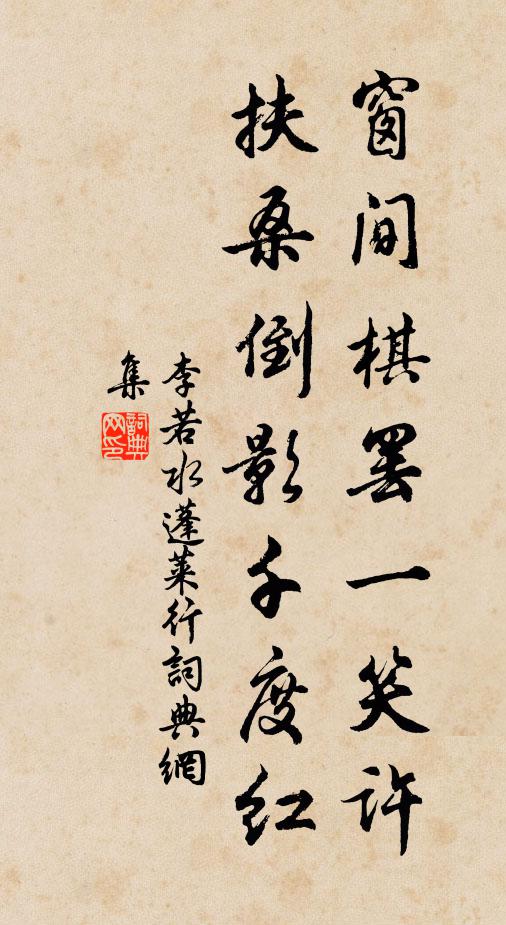 窗间棋罢一笑许
扶桑倒影千度红
李若水蓬莱行詞典網
集
詞典
网印